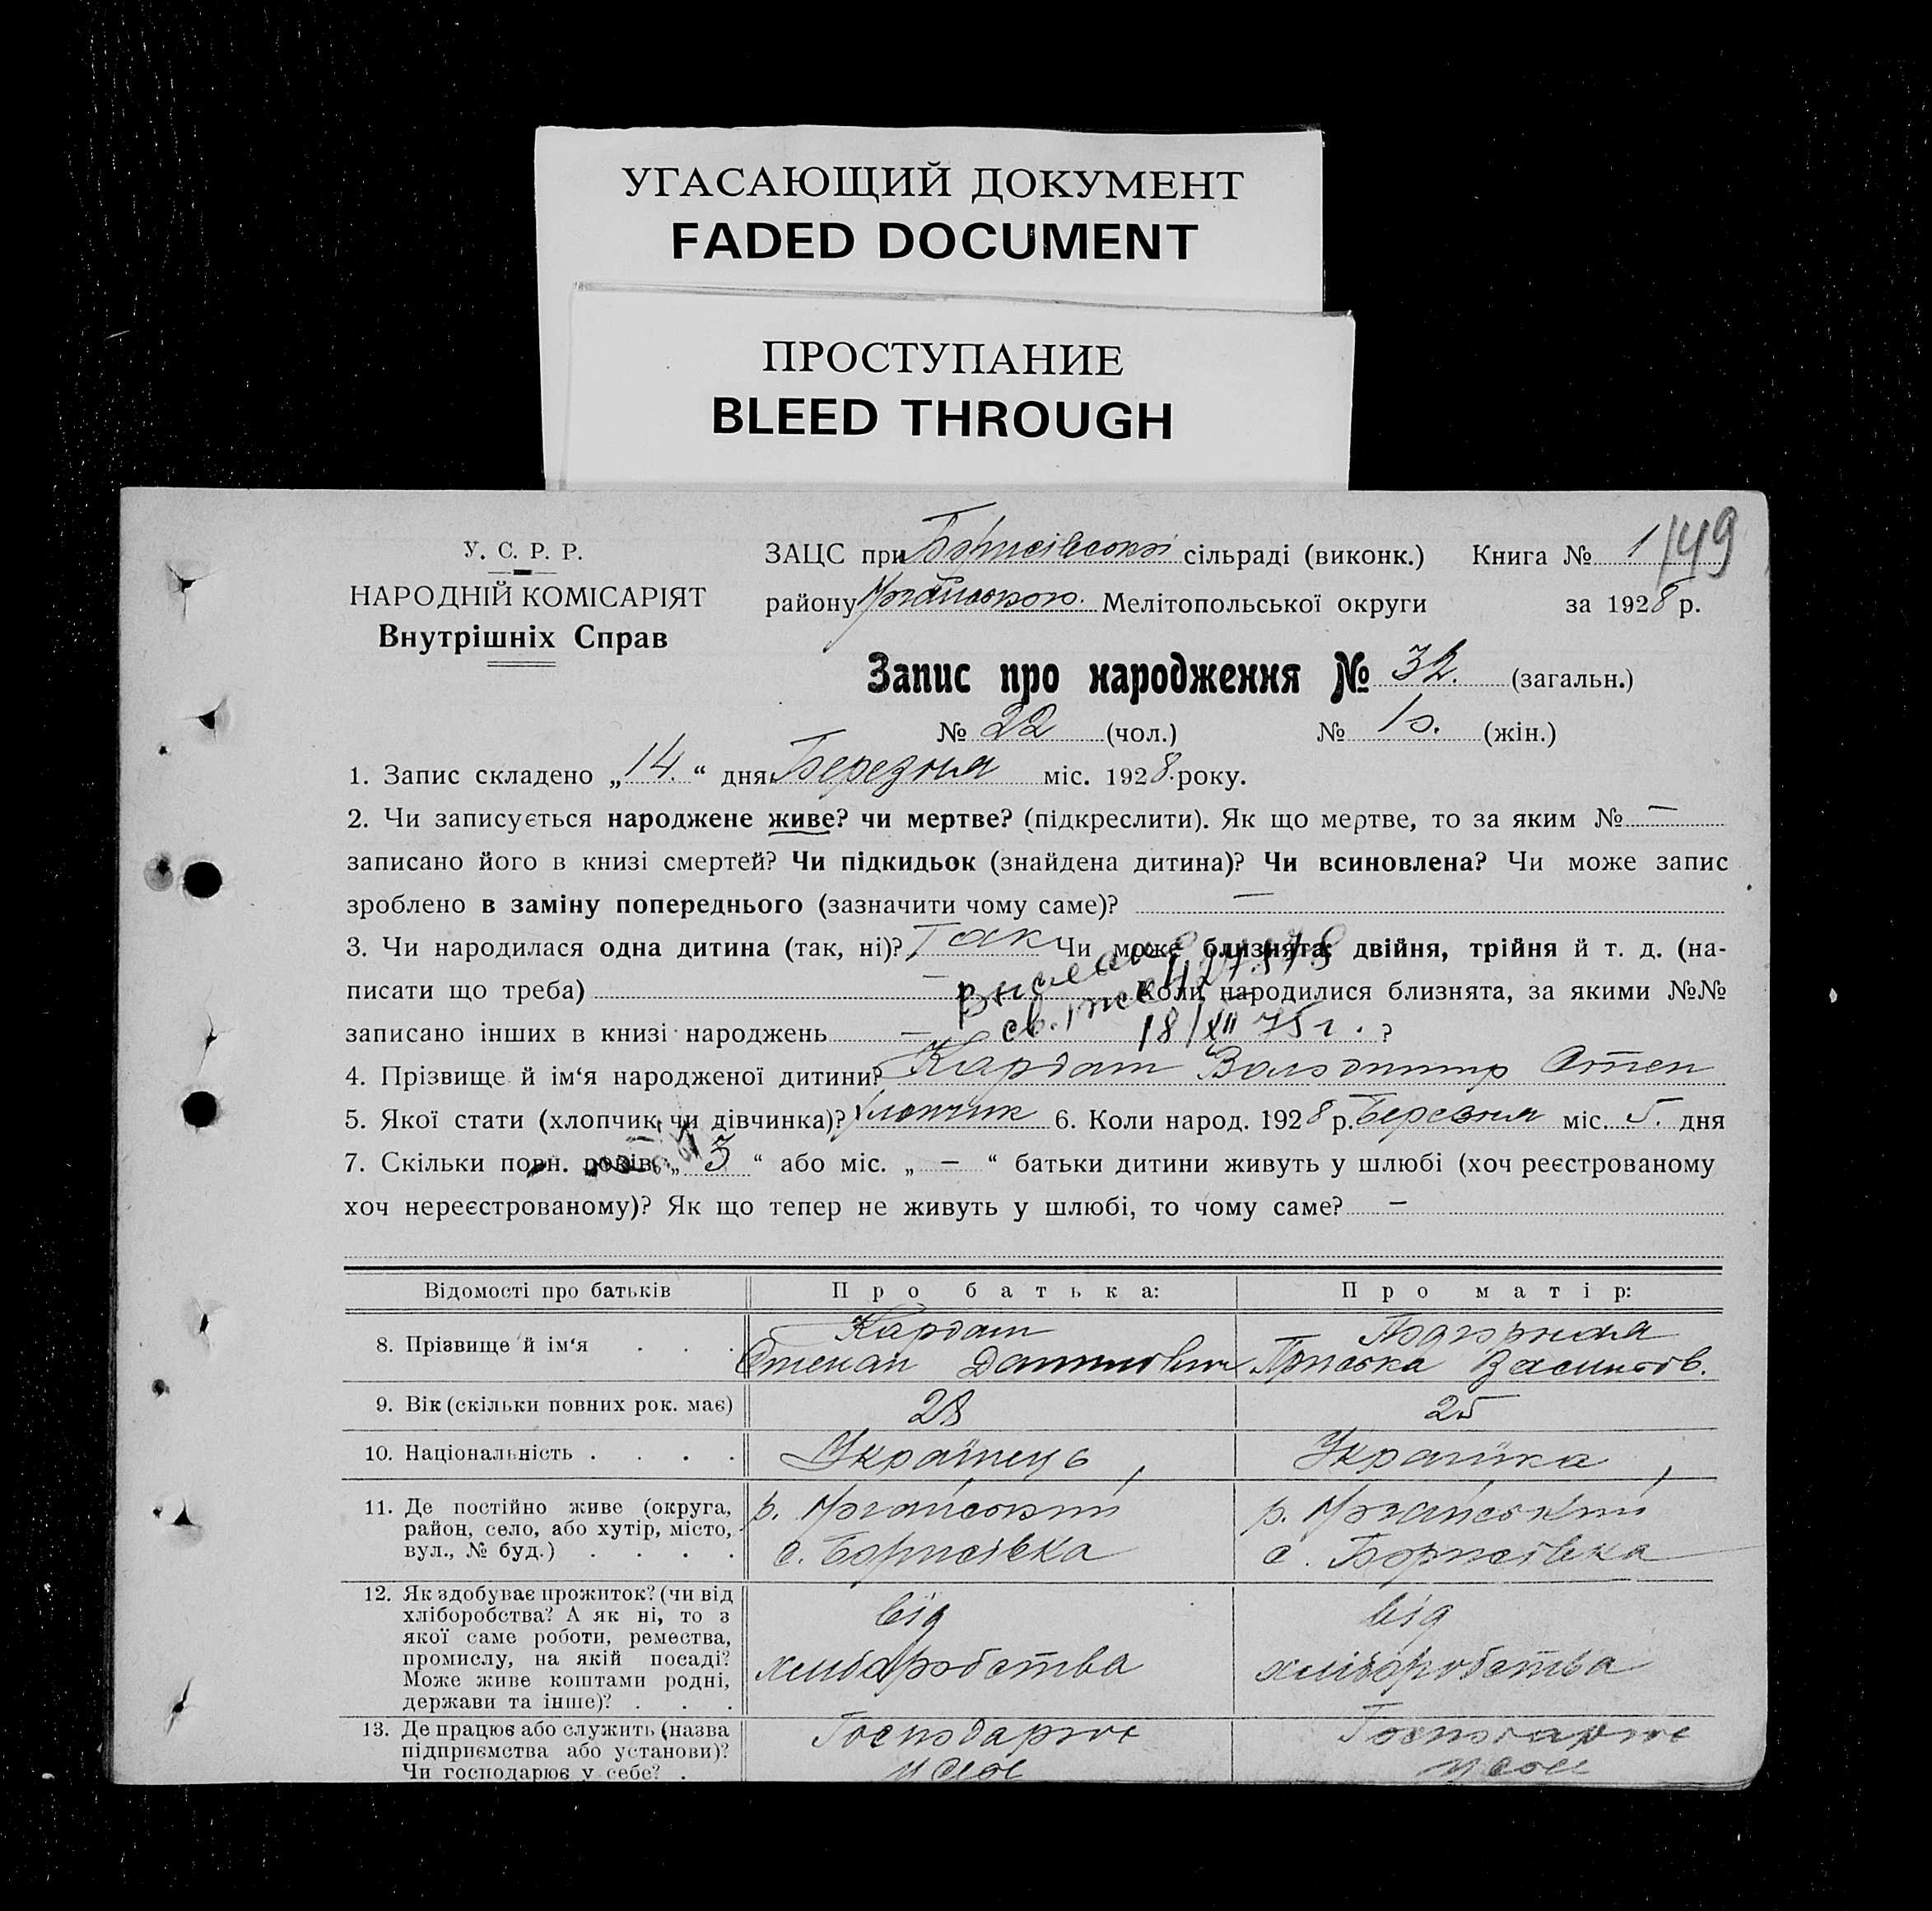 УГАСАЮЩИЙ ДОКУМЕНТ
FADED DOCUMENT
ПРОСТУПАНИЕ
BLEED THROUGH
У. С. Р. Р.
НАРОДНІЙ КОМІСАРІЯТ
Внутрішніх Справ
ЗАЦС при Борисівській сільраді (виконк.) Книга № 1/49
району Мелітопольської округи за 1928 р.
Запис про народження № 32. (загальн.)
№ 22 (чол.) № 10. (жін.)
1. Запис складено „14.“ дня Березня міс. 1928. року.
2. Чи записується народжене живе? чи мертве? (підкреслити). Як що мертве, то за яким № —
записано його в книзі смертей? Чи підкидьок (знайдена дитина)? Чи всиновлена? Чи може запис
зроблено в заміну попереднього (зазначити чому саме)? —
3. Чи народилася одна дитина (так, ні)? Так Чи може близнята: двійня, трійня й т. д. (на-
писати що треба) — Коли народилися близнята, за якими №№
записано інших в книзі народжень — ?
св. 18/XII 75 г.
4. Прізвище й ім'я народженої дитини? Кардаш Володимир Степ
5. Якої стати (хлопчик чи дівчинка)? Хлопчик 6. Коли народ. 1928 р. Березня міс. 5. дня
7. Скільки повн. років „3“ або міс. „—“ батьки дитини живуть у шлюбі (хоч реєстрованому
хоч нереєстрованому)? Як що тепер не живуть у шлюбі, то чому саме? —
Відомості про батьків Про батька: Про матір:
8. Прізвище й ім‘я . . .
Кардаш
Степан
Подгорная
Приська Василів.
9. Вік (скільки повних рок. має) 28 25
10. Національність . . . . Українець, Українка,
11. Де постійно живе (округа,
район, село, або хутір, місто,
вул., № буд.) . . . .
р.
с. Борисівка
р.
с. Борисівка
12. Як здобуває прожиток? (чи від
хліборобства? А як ні, то з
якої саме роботи, ремества,
промислу, на якій посаді?
Може живе коштами родні,
держави та інше)? . . .
від
хліборобства
від
хліборобства
13. Де працює або служить (назва
підприємства або установи)?
Чи господарює у себе? .
Господарює
у себе
Господарює
у себе